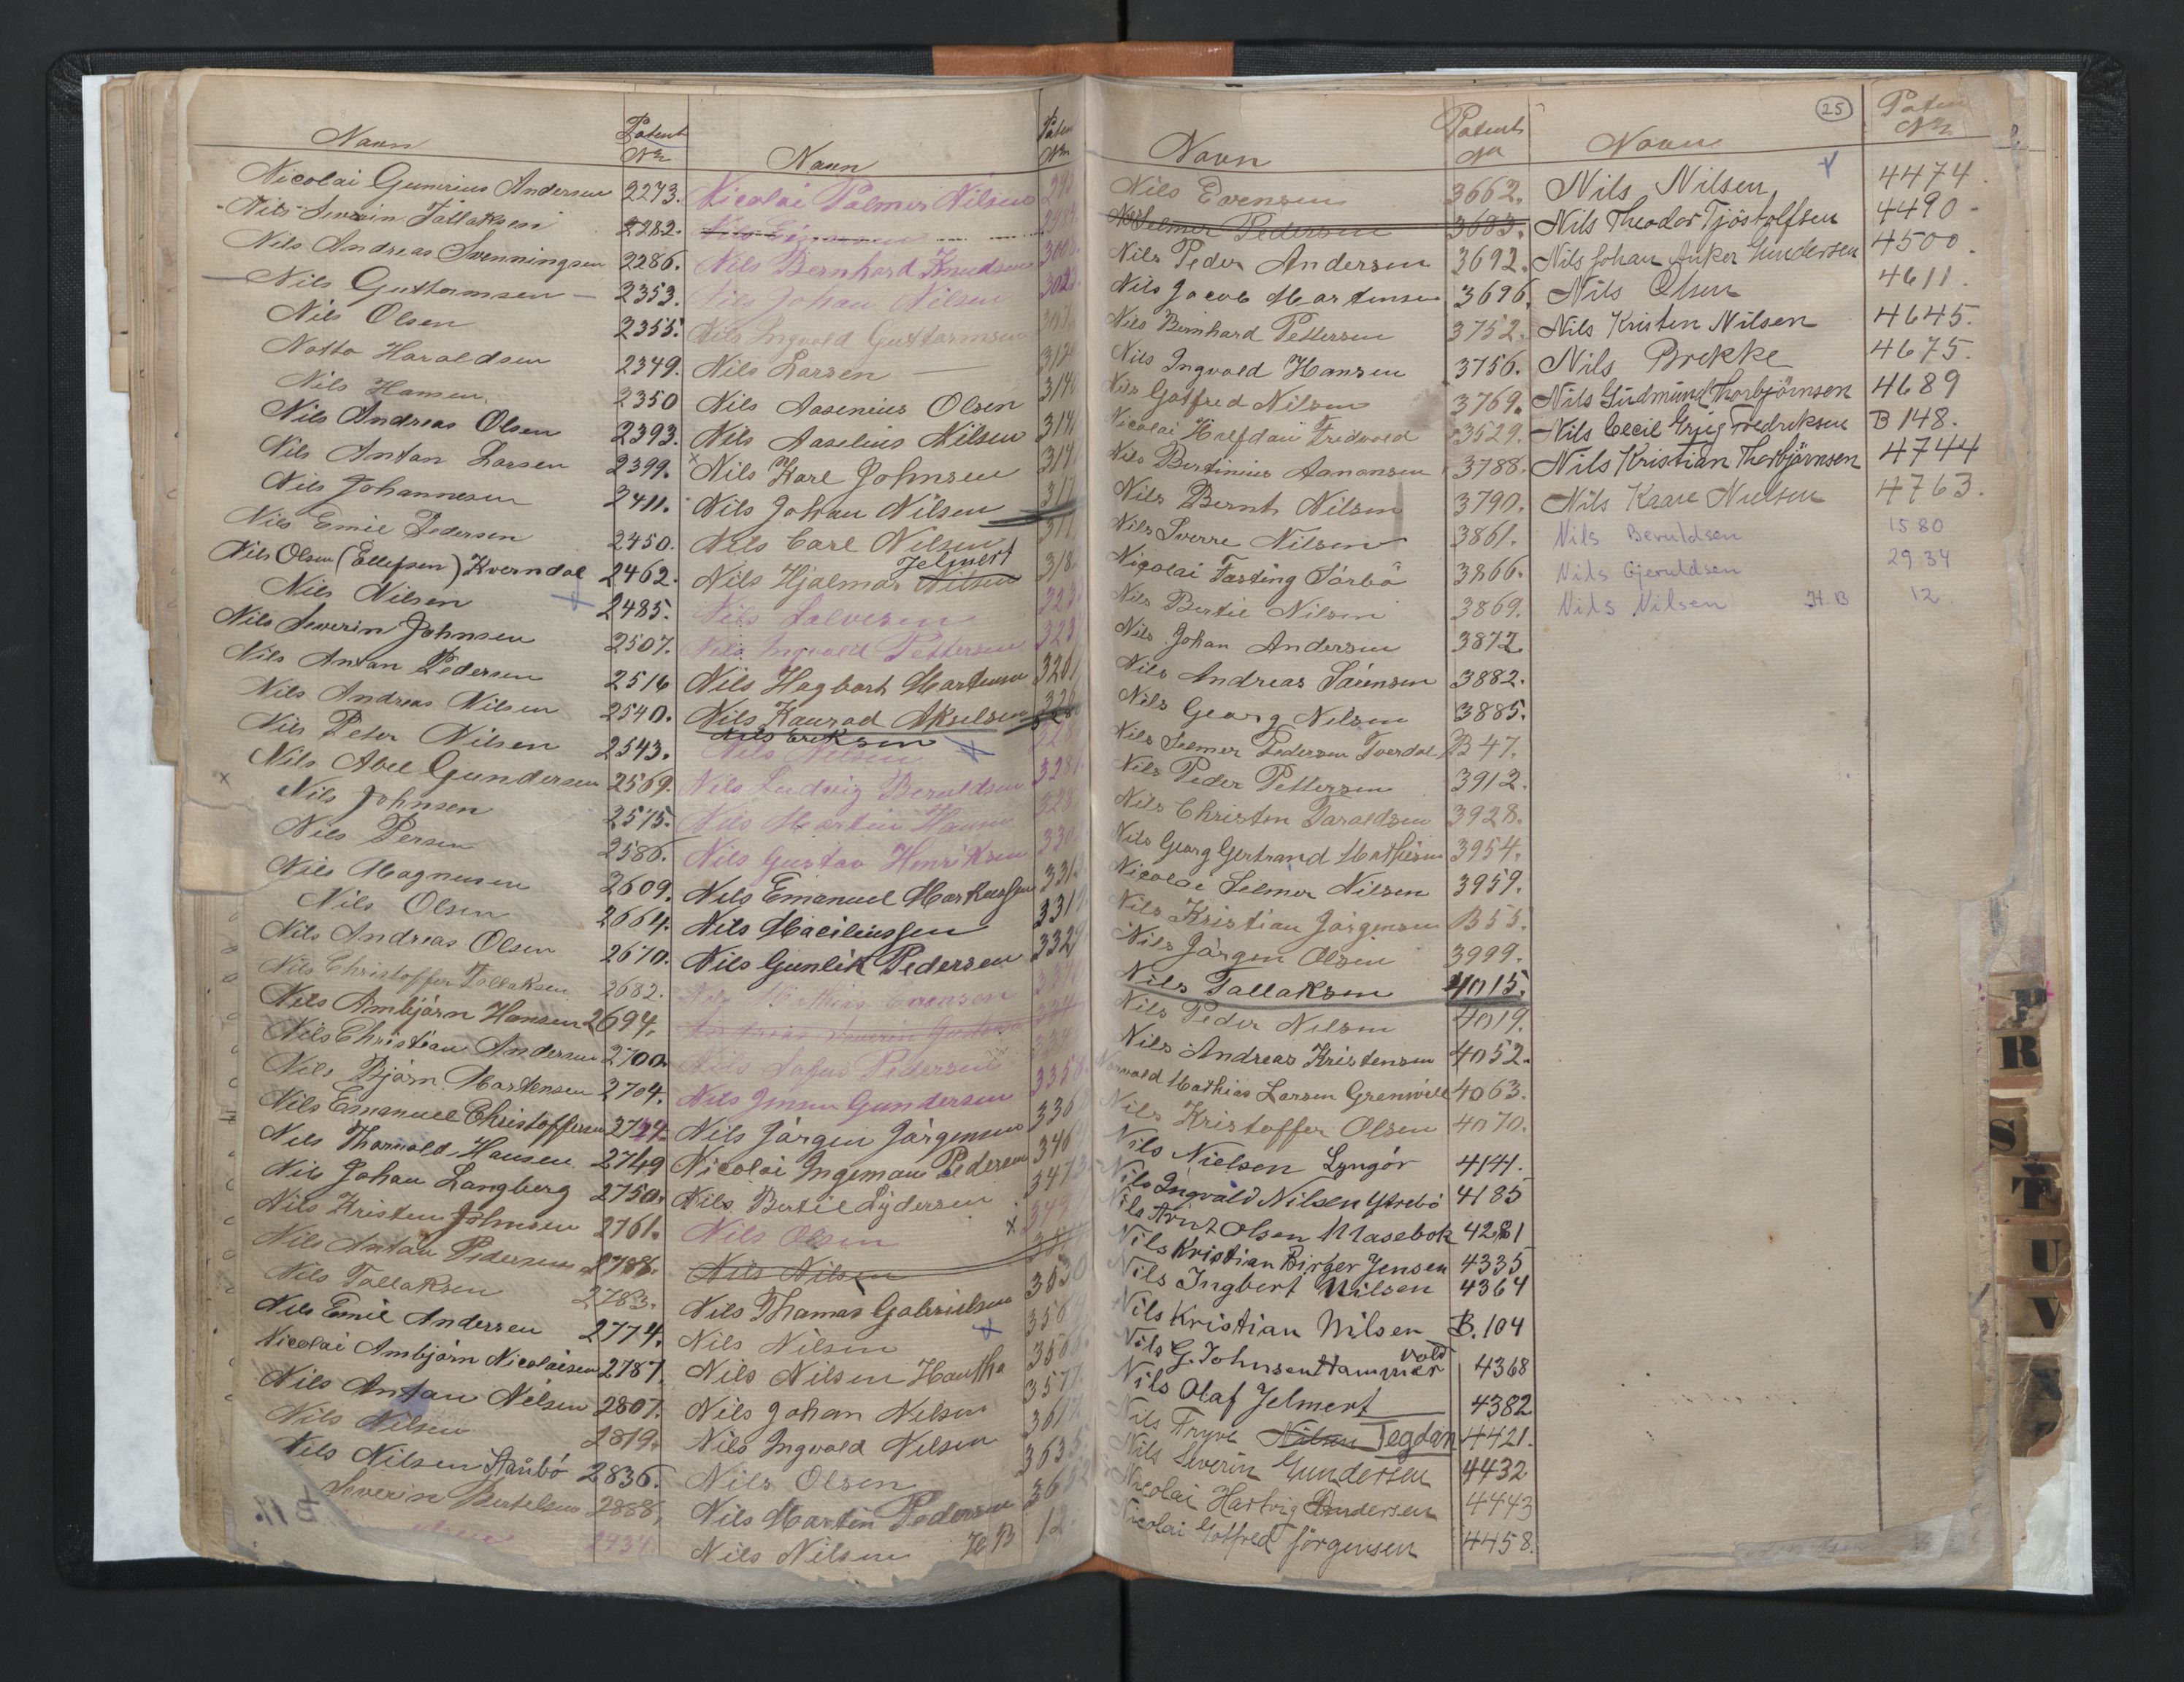 Navn Patent Nr
Nicolai Gunerius Andersen 2273.
Nils Severin Tallaksen 2282.
Nils Andreas Svenningsen 2286.
Nils Guttormsen 2353.
Nils Olsen 2355.
Notto Haraldsen 2349.
Nils Hansen 2350
Nils Andreas Olsen 2393.
Nils Anton Larsen 2399.
Nils Johannesen 2411.
Nils Emil Pedersen 2450.
Nils Olsen (Ellefsen) Kverndal 2462.
Nils Nilsen 2485.
Nils Severin Johnsen 2507.
Nils Anton Pedersen 2516
Nils Andreas Nilsen 2540.
Nils Peter Nilsen 2543.
Nils Abel Gundersen 2569.
Nils Johnsen 2575.
Nils Persen 2586.
Nils Magnusen 2609.
Nils Olsen 2664.
Nils Andreas Olsen 2670.
Nils Christoffer Tallaksen 2682.
Nils Ambjörn Hansen 2694.
Nils Christian Andersen 2700.
Nils Bjørn Martensen 2704.
Nils Emanuel Christoffersen
Nils Thorvald Hansen 2749
Nils Johan Langberg 2750.
Nils Kristen Johnsen 2761.
Nils Anton Pedersen 2788.
Nils Tallaksen 2783.
Nils Emil Andersen 2774.
Nicolai Ambjörn Nicolaisen 2787.
Nils Antau Nilsen 2807.
Nils Nilsen 2819.
Nils Nilsen Staübö 2836.
Severin Bertelsen 2888.
2934
Navn Paten Nr
Nicolai Palmer Nilsen
Nils Bernhard Knudsen
Nils Johan Nilsen
Nils Ingvald Guttormsen
Nils Larsen
Nils Aasenius Olsen
Nils Aaselius Nilsen
Nils Karl Johnsen
Nils Johan Nilsen
Nils Carl Nilsen
Jelmert
Nils Hjalmar Nilsen
Nils Halvorsen
Nils Ingvald Pettersen
Nils Hagbart Martensen
Nils Konrad Akselsen
Nils Eriksen
Nils Nilsen
Nils Ludvig Beruldsen
Nils Martin Hansen
Nils Gustav Henriksen
Nils Emanuel Markussen
Nils Maciliussen
Nils Gunlik Pedersen 3329
Nils Mathias Evensen
Nils Jensen Gundersen 3358
Nils Jörgen Jörgensen
Nicolai Ingeman Pedersen
Nils Bertil Lydersen
Nils Olsen
Nils Nilsen
Nils Thomas Gabrielsen
Nils Nilsen
Nils Nilsen Hautho
Nils Johan Nilsen
Nils Ingvald Nilsen
Nils Olsen
Nils Martin Pedersen
Nils Nilsen H B 12
Navn Patent Nr
Nils Evensen 3662.
Nils Selmer Pedersen 3683.
Nils Peder Andersen 3692.
Nils Jacob Martensen 3696.
Nils Bernhard Pettersen 3752.
Nils Ingvald Hansen 3756.
Nils Gotfred Nilsen 3769.
Nicolai Halfdan Fredvold 3529.
Nils Bertinius Aanonsen 3788.
Nils Bernt Nilsen 3790.
Nils Sverre Nilsen 3861.
Nicolai Fasting Sörbö 3866.
Nils Bertil Nilsen 3869.
Nils Johan Andersen 3872.
Nils Andreas Sörensen 3882.
Nils Georg Nilsen 3885.
Nils Selmer Pedersen Tverdal B 47.
Nils Peder Pettersen 3912.
Nils Christen Taraldsen 3928.
Nils Georg Gertrand Mathisen 3954.
Nicolai Selmer Nilsen 3959.
Nils Kristian Jörgensen B 55.
Nils Jörgen Olsen 3999.
Nils Tallaksen 4015.
Nils Peder Nilsen 4019.
Nils Andreas Kristensen 4052.
Norvald Mathias Larsen Grenwill 4063.
Nils Kristoffer Olsen 4070.
Nils Nielsen Lyngör 4141.
Nils Ingvald Nilsen Ytrebö 4185
Nils Arnt Olsen Maasebok 4281
Nils Kristian Birger Jensen 4335
Nils Ingbert Nilsen 4364
Nils Kristian Nilsen B. 104
vold
Nils G. Johnsen Hammer 4368
Nils Olaf Jelmert 4382
Nils Trygve Nilsen Tegdan 4421.
Nils Severin Gundersen 4432
Nicolai Hartvig Andersen 4443
Nicolai Gotfred Jörgensen 4458.
25
Navn Paten Nr
Nils Nilsen 4474.
Nils Theodor Tjöstolfsen 4490
Nils Johan Anker Gundersen 4500.
Nils Olsen 4611.
Nils Kristen Nilsen 4645.
Nils Brekke 4675.
Nils Gudmund Thorbjörnsen 4689
Nils Cecil Grieg Fredriksen B 148.
Nils Kristian Thorbjörnsen 4744
Nils Kaare Nielsen 4763.
Nils Beruldsen 1580
Nils Gjeruldsen 2934
Nils Nilsen H.B 12
P
R
S
T
U
V